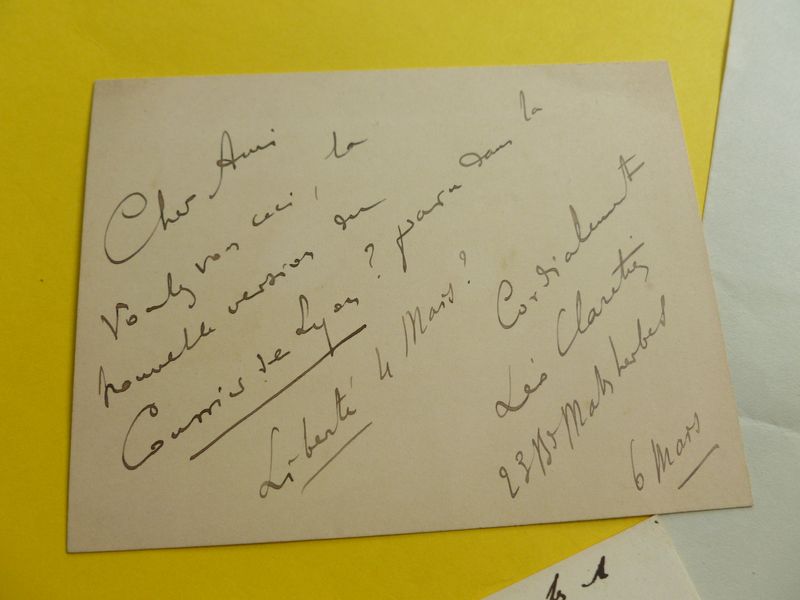 Cher Ami
Voulez vous ceci, la
nouvelle version du
Courrier de Lyon ? paru dans la
Liberté 4 Mars ?
Cordialement
Léo Claretie
23 Bd Malesherbes
6 Mars